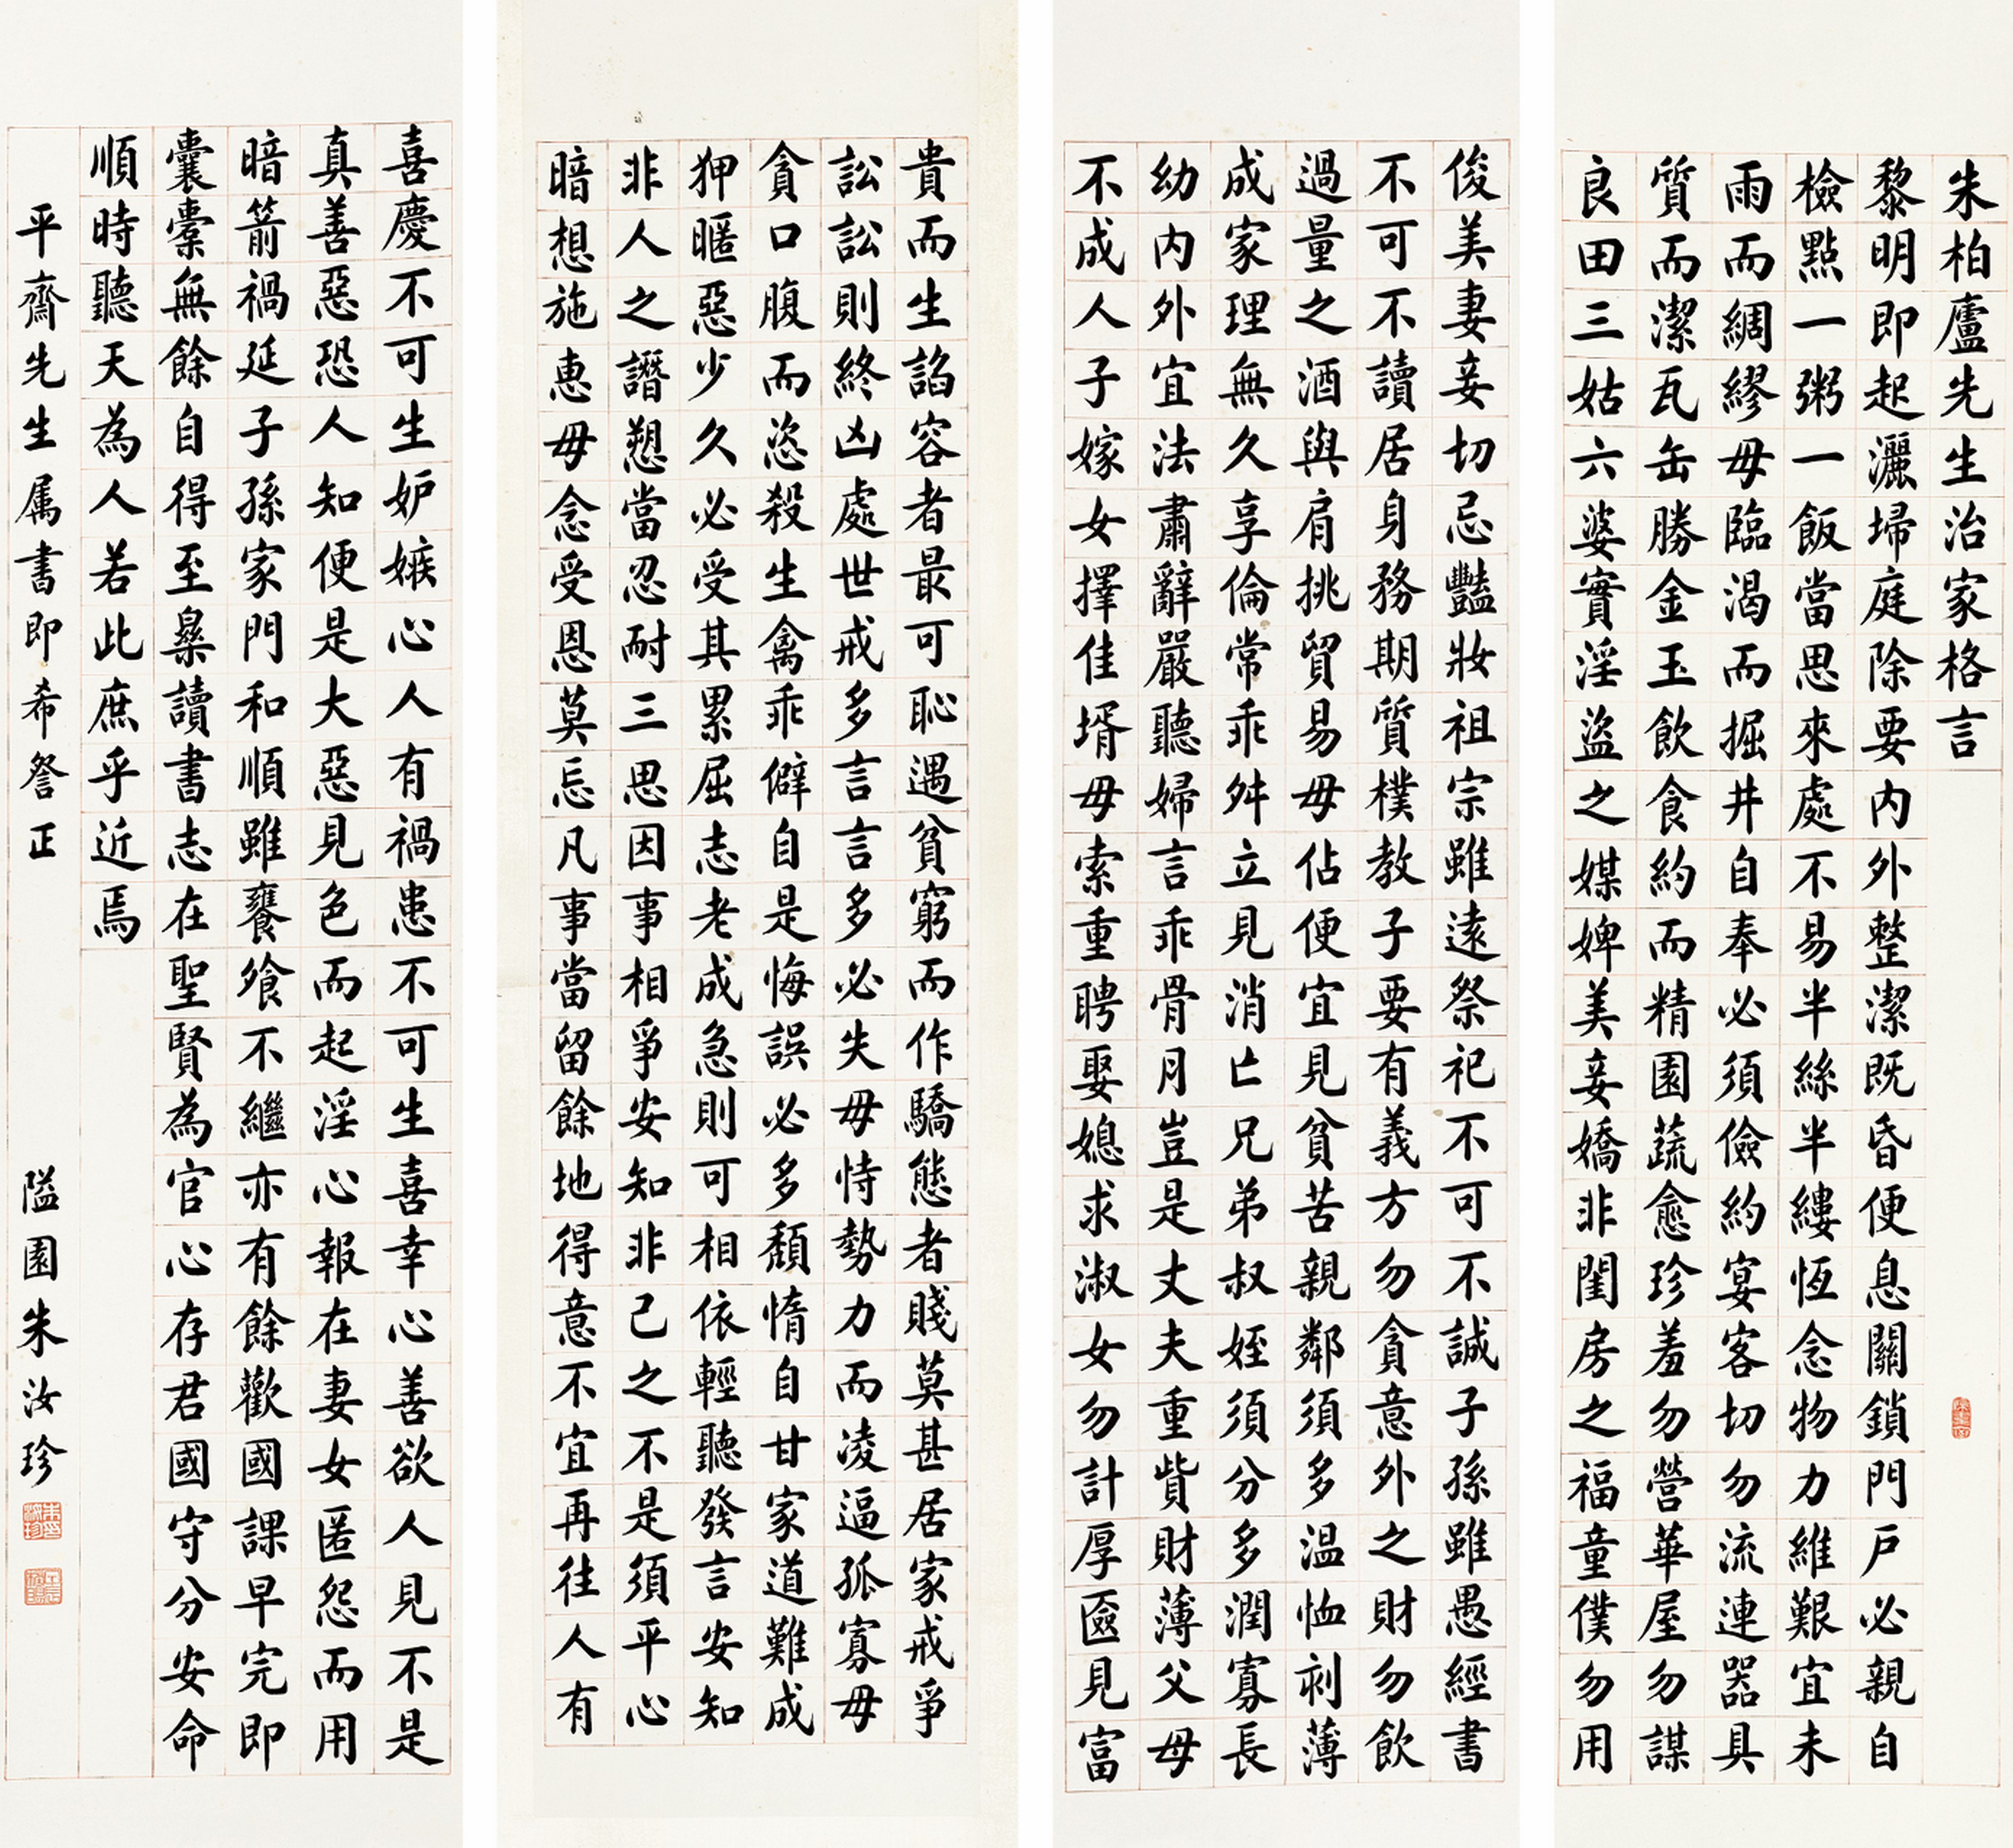 朱柏廬先生治家格言
黎明即起灑埽庭除要内外整潔既昏便息關鎖門戶必親自
檢點一粥一飯當思來處不易半絲半縷恆念物力維艱宜未
雨而綢繆毋臨渴而掘井自奉必須儉約宴客切勿流連器具
質而潔瓦缶勝金玉飲食約而精園蔬愈珍羞勿營華屋勿謀
良田三姑六婆實淫盜之媒婢美妾嬌非閨房之福童僕勿用
俊美妻妾切忌豔妝祖宗雖遠祭祀不可不誠子孫雖愚經書
不可不讀居身務期質樸教子要有義方勿貪意外之財勿飲
過量之酒與肩挑貿易毋佔便宜見貧苦親鄰須多温恤刻薄
成家理無久享倫常乖舛立見消亡兄弟叔姪須分多潤寡長
幼内外宜法肅辭嚴聽婦言乖骨月豈是丈夫重貲財薄父母
不成人子嫁女擇佳壻毋索重聘娶媳求淑女勿計厚匳見富
貴而生諂容者最可恥遇貧窮而作驕態者賤莫甚居家戒爭
訟訟則終凶處世戒多言言多必失毋恃勢力而凌逼孤寡毋
貪口腹而恣殺生禽乖僻自是悔誤必多頹惰自甘家道難成
狎暱惡少久必受其累屈志老成急則可相依輕聽發言安知
非人之譖愬當忍耐三思因事相爭安知非己之不是須平心
暗想施惠毋念受恩莫忘凡事當留餘地得意不宜再往人有
喜慶不可生妒嫉心人有禍患不可生喜幸心善欲人見不是
真善惡恐人知便是大惡見色而起淫心報在妻女匿怨而用
暗箭禍延子孫家門和順雖饔飧不繼亦有餘歡國課早完即
囊橐無餘自得至樂讀書志在聖賢為官心存君國守分安命
順時聽天為人若此庶乎近焉
平齋先生属書即希詧正
隘園朱汝珍